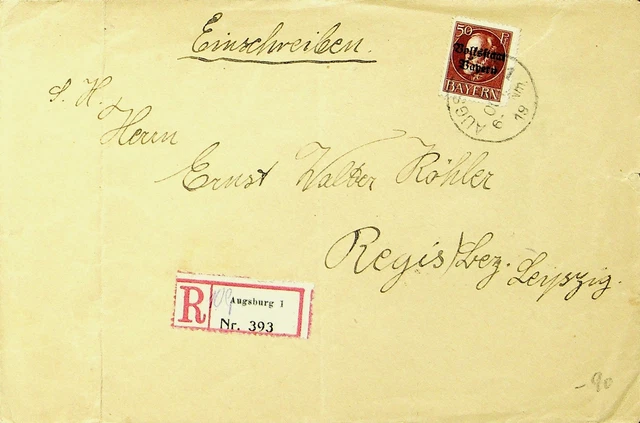 Einschreiben.
50 Pf
Volksstaat
Bayern
BAYERN
AUGSB
Vm.
S. H.
Herrn
Ernst Walter Köhler
Regis/Bez. Leipzig.
R
Augsburg 1
Nr. 393
-90